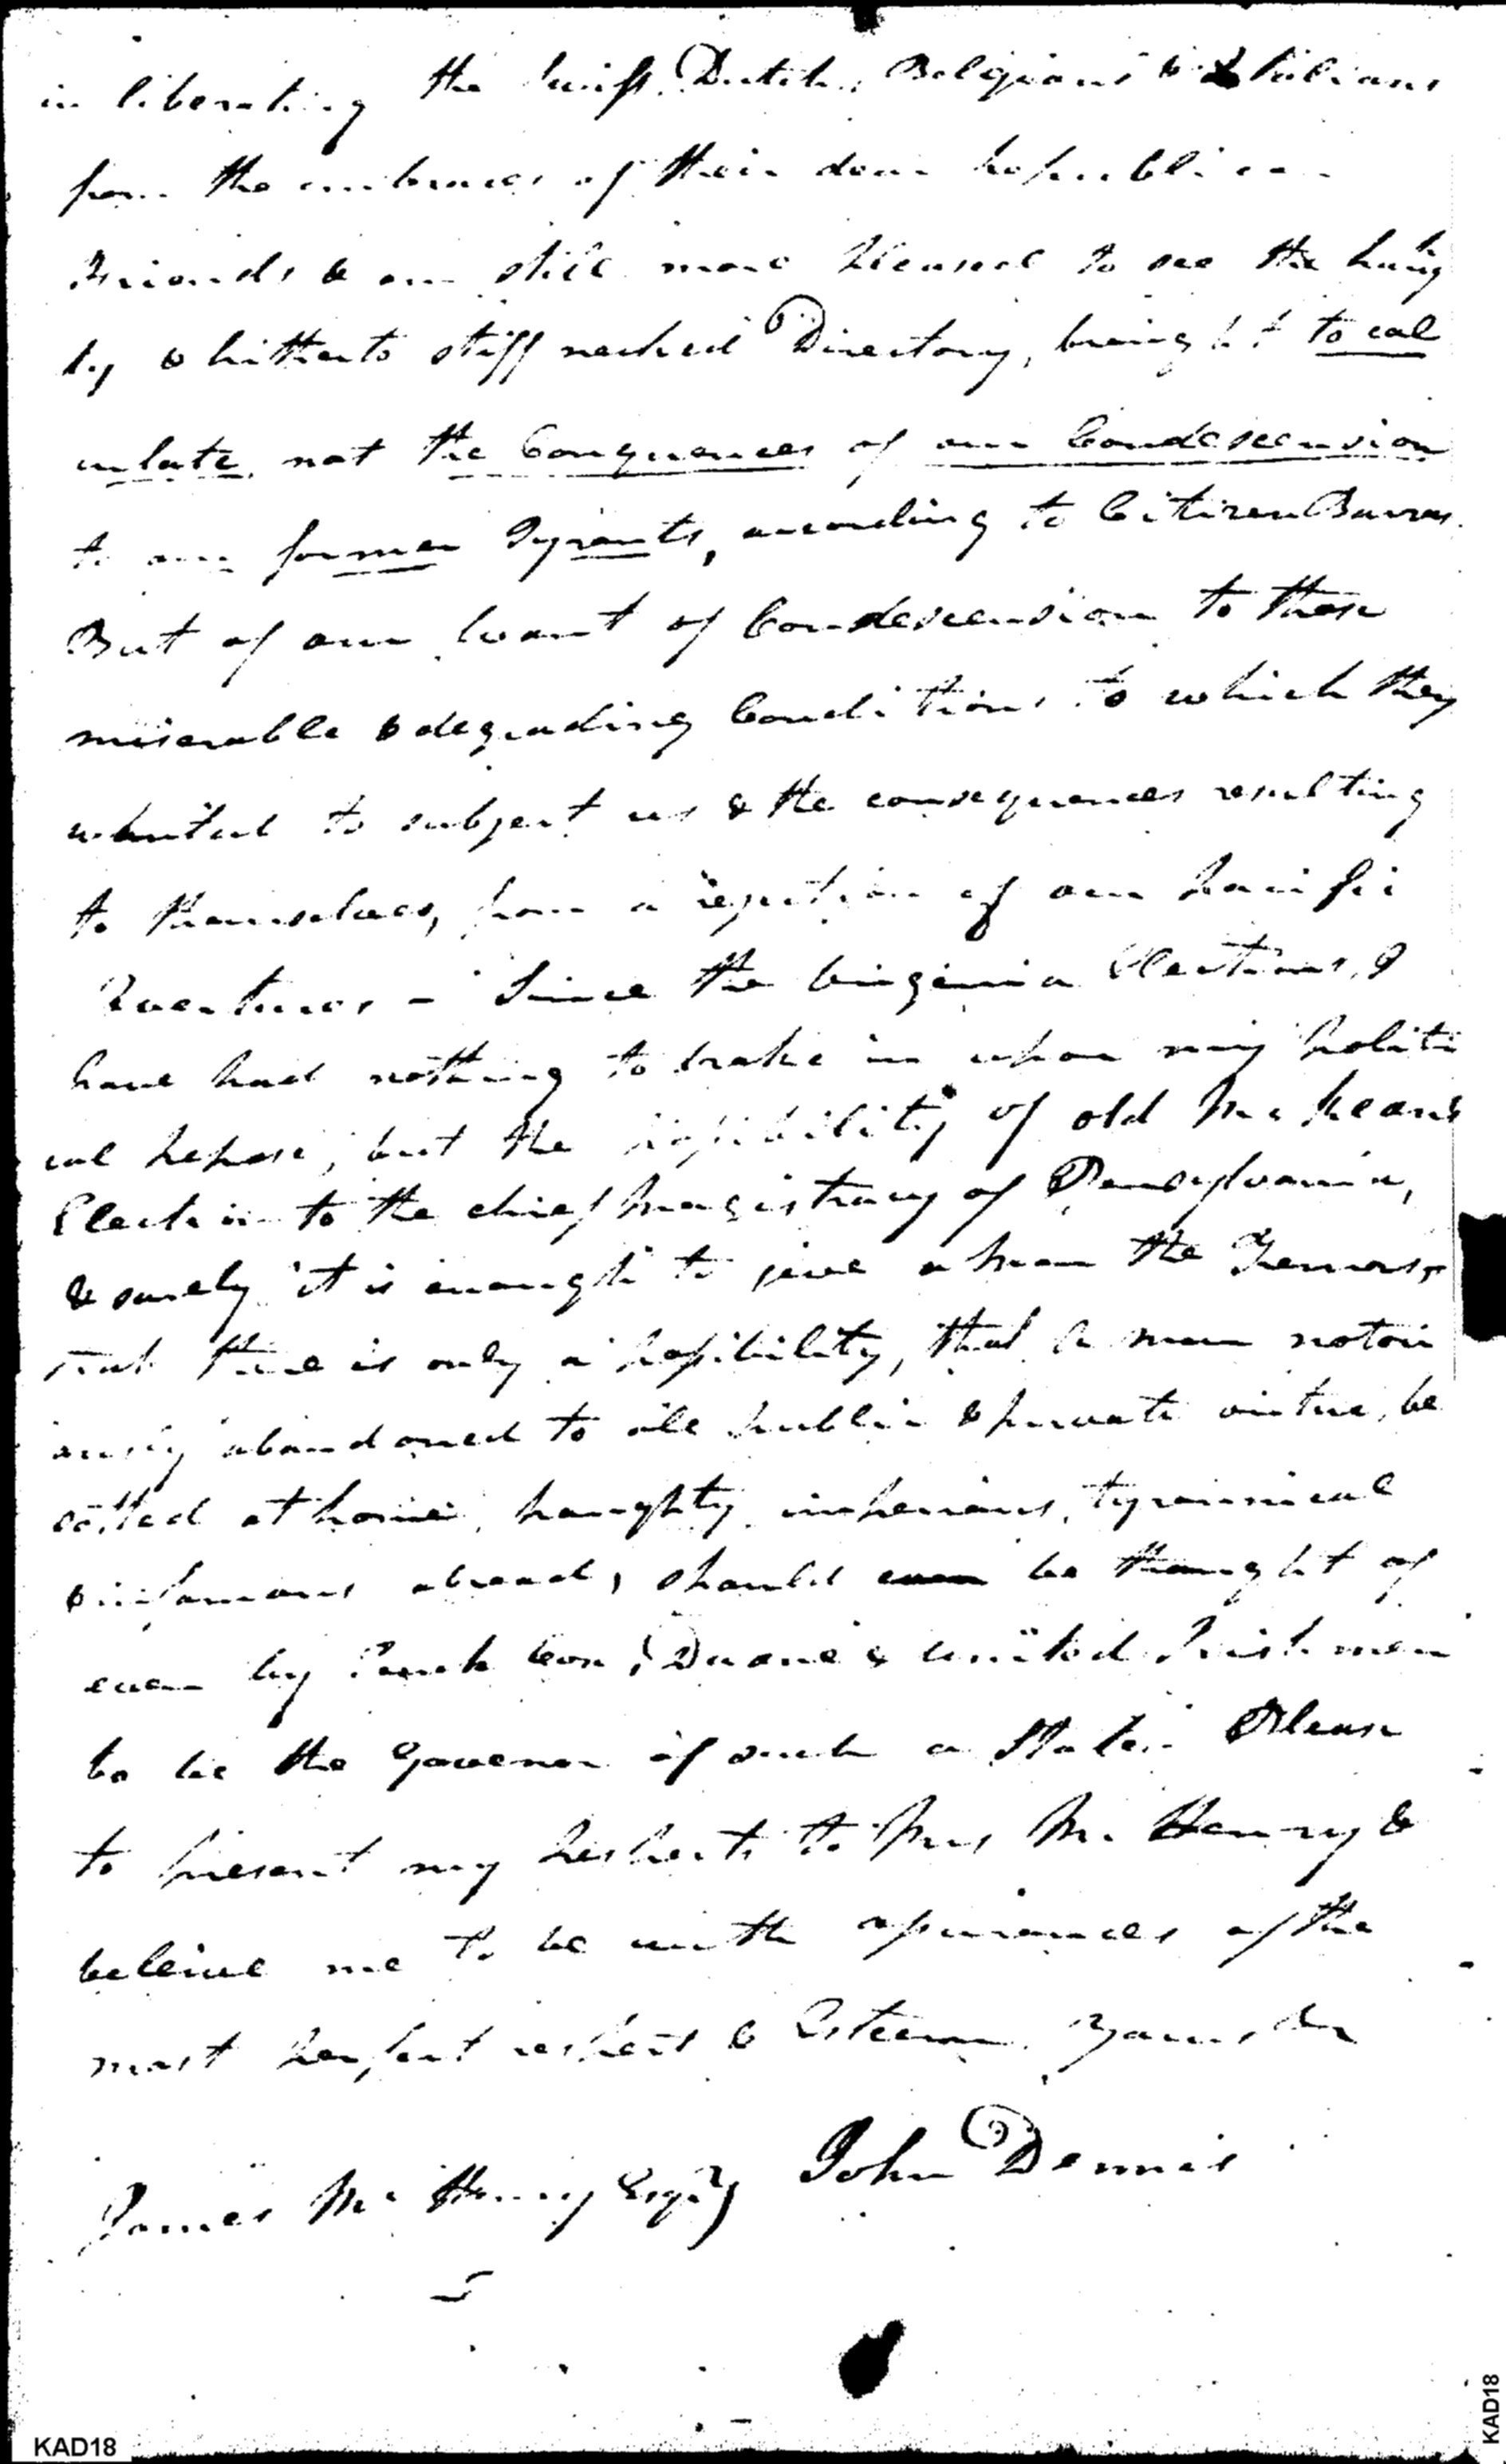 in liberating the Swiss, Dutch, Belgians & Italians
from the embraces of their dear Republican
Friends & am still more pleased to see the haug
ty & hitherto stiff necked Directory, brought to cal
culate, not the Consquences of our Condescension
to our former Tyrants, according to Citizen Barras.
But of our want of Condescension to those
miserable & degrading Conditions to which they
wanted to subject us & the consequences resulting
to themselves, from a rejection of our Pacific
Overtures - Since the Virginia Elections, I
have had nothing to brake in upon my Politi
cal Repose, but the possibility of old McKeans
Election to the chief Magistracy of Pensylvania,
& surely it is enough to give a man the
that there is only a possibility, that a man notori
ously abandoned to all public & private virtue, be
sotted at home, haughty, imperious, tyrannical
& infamous abroad, should even be thought of
even by Duane & United Irishmen
to be the Govenor of such a State. Please
to present my Respects to Mrs McHenry &
beleive me to be with assurances of the
most perfect respect & Esteem Yours
John Dennis
James McHenry Esqr
KAD18
KAD18